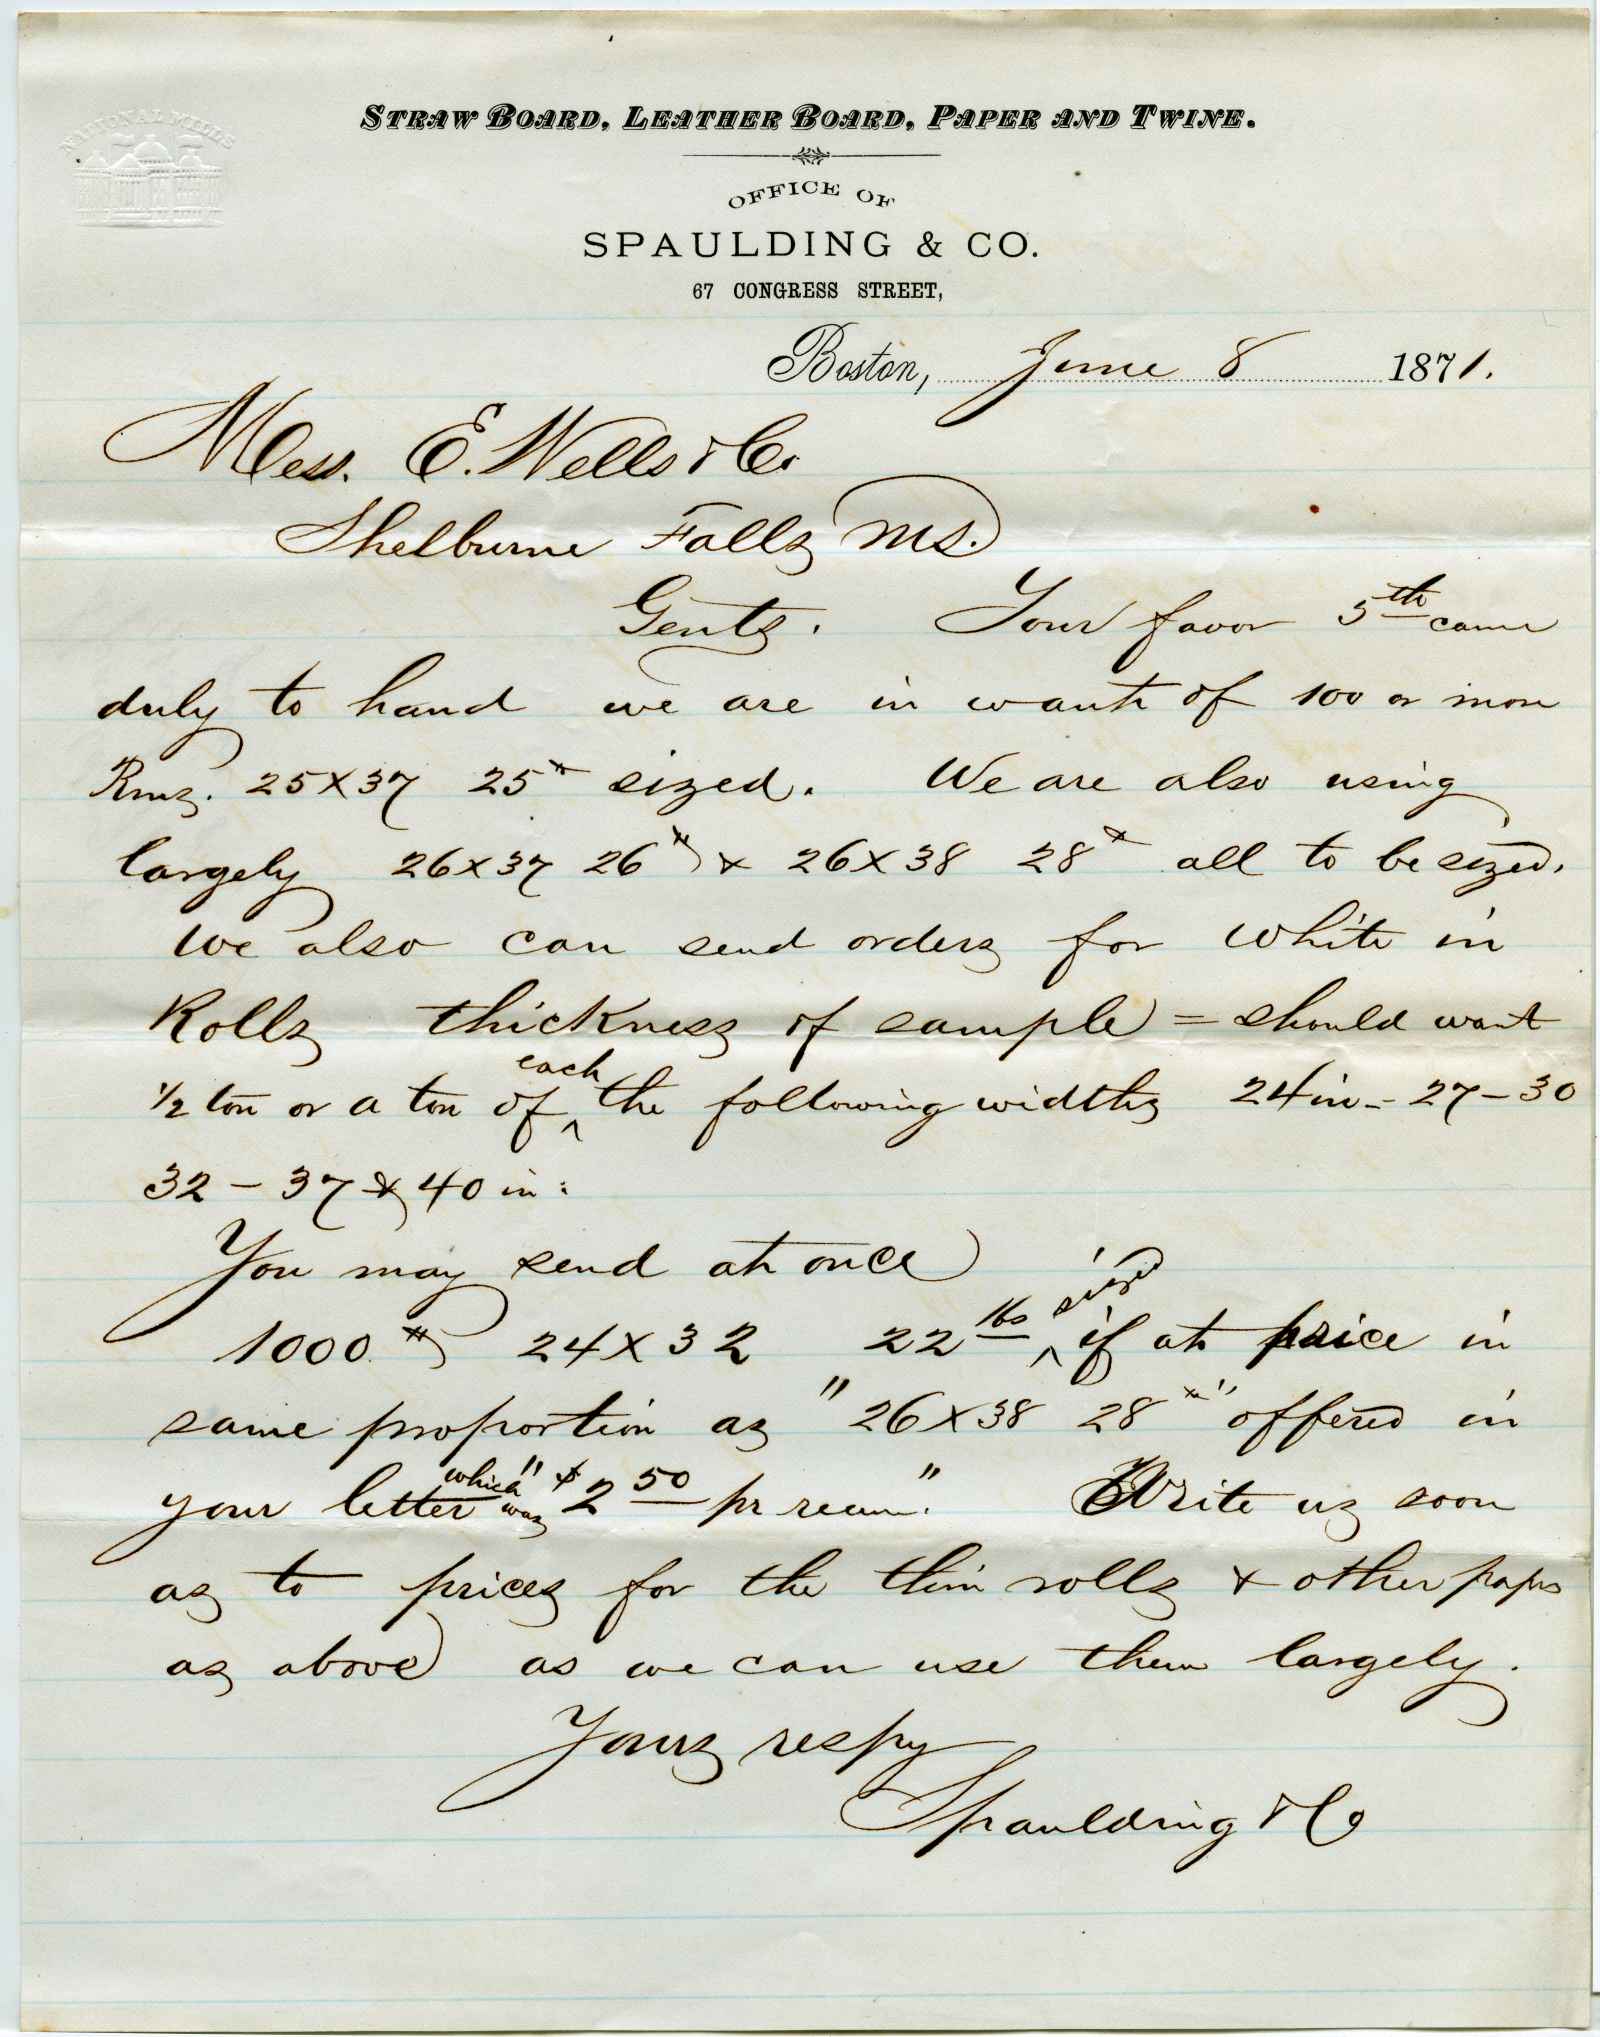 NATIONAL MILLS
STRAW BOARD, LEATHER BOARD, PAPER AND TWINE.
OFFICE OF
SPAULDING & CO.
67 CONGRESS STREET,
Boston, June 8 1871.
Mess. E. Wells & Co.
Shelburne Falls Ms.
Gents. Your favor 5th came
duly to hand we are in want of 100 or more
Rms. 25x37 25# sized. We are also using
largely 26x37 26# & 26x38 28# all to be sized.
We also can send orders for white in
Rolls thickness of sample = should want
1/2 ton or a ton of each the following widths 24 in - 27 - 30
32 - 37 & 40 in:
You may send at once
1000 # 24 x 32 22 lbs sized if at price in
same proportion as "26x38 28#" offered in
your letter which was "$2 50 pr ream." Write us soon
as to prices for the thin rolls & other paprs
as above as we can use them largely.
Yours respy
Spaulding & Co